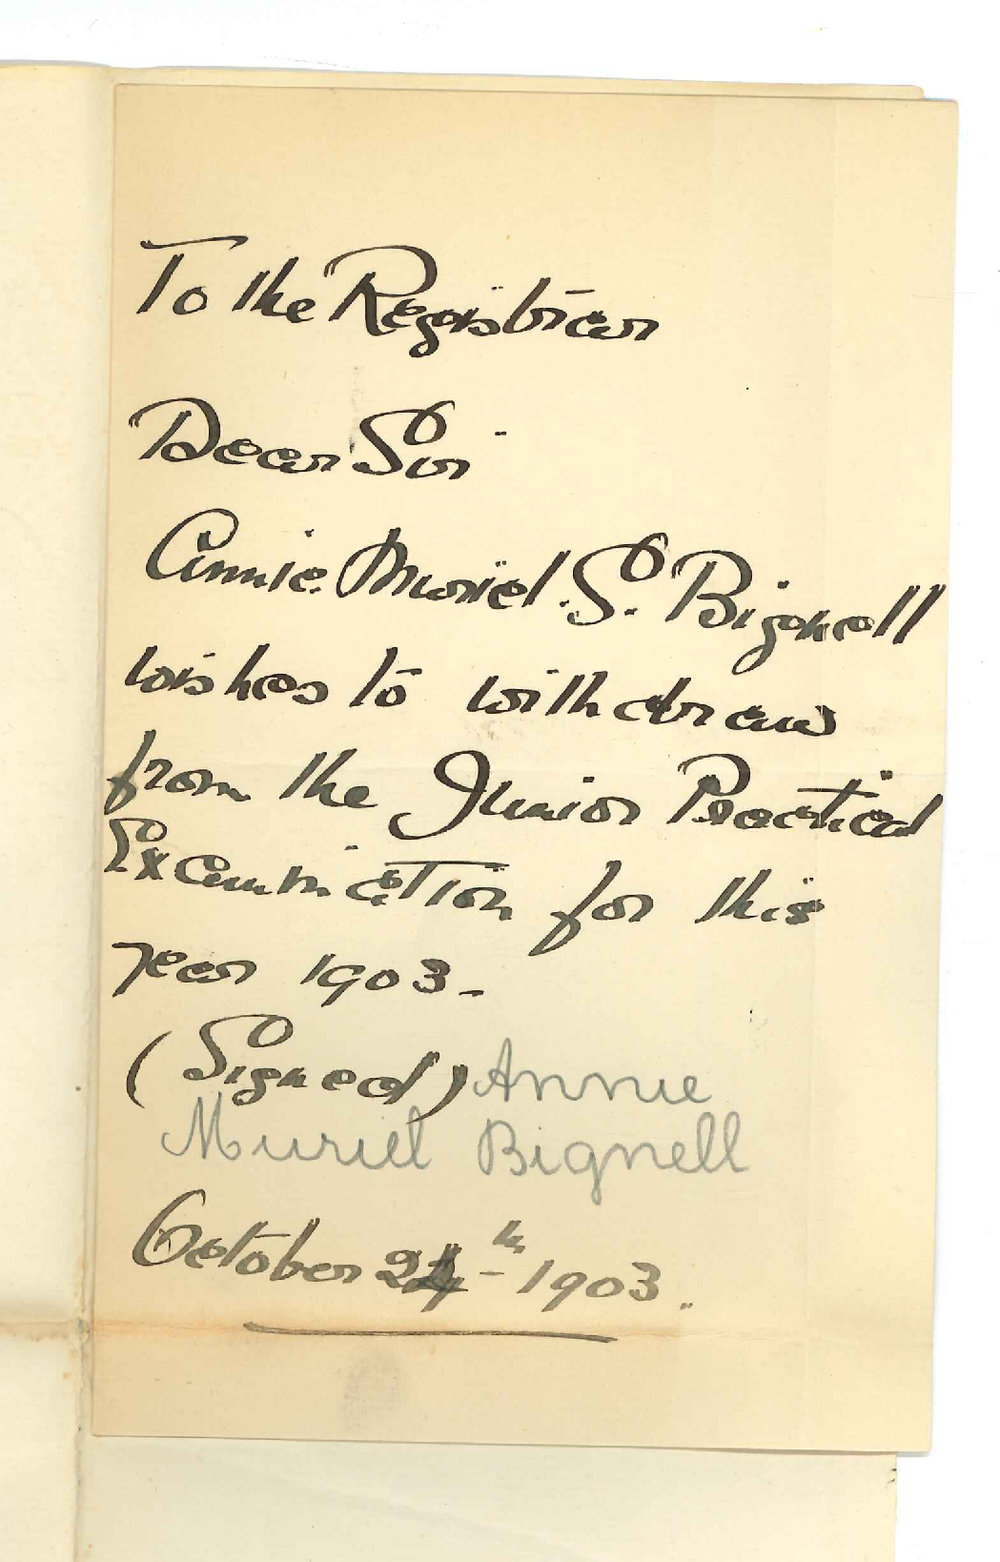 To the Registrar
Dear Sir
Annie. Muriel. S. Bignell
wishes to withdraw
from the Junior Practical
Examination for this
year 1903.
(Signed) Annie
Muriel Bignell
October 24th 1903.